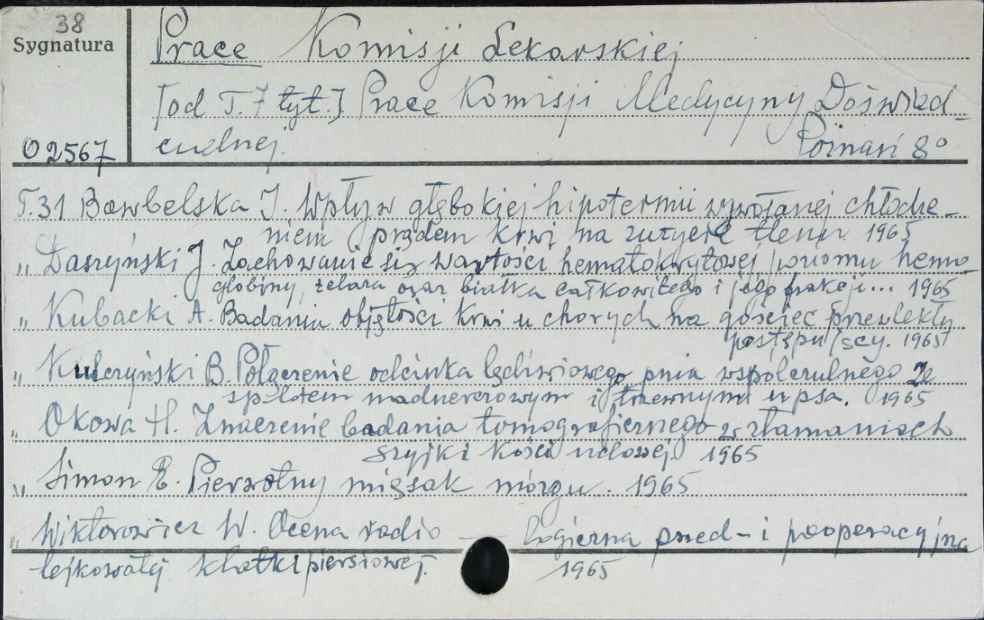 38
Sygnatura
Prace Komisji Lekarskiej
[od T. 7 tyt.] Prace Komisji Medycyny Doświad-
czalnej. Poznań 8°
O 2567
T. 31 J. Wpływ głębokiej hipotermii wywołanej chłodze-
niem prądem krwi na zużycie tlenu 1965
„ Daszyński J. Zachowanie się wartości hematokrytowej, poziomu hemo-
globiny, żelaza oraz białka całkowitego i jego frakcji... 1965
„ Kubacki A. Badania objętości krwi u chorych na gościec przewlekły
postępujący. 1965
„ Kulczyński B. Połączenie odcinka lędźwiowego pnia współczulnego ze
splotem nadnerczowym i trzewnym u psa. 1965
„ Okowa H. Znaczenie badania tomograficznego w złamaniach
szyjki kości udowej 1965
„ Simon E. Pierwotny mięsak mózgu. 1965
„ Wiktorowicz W. Ocena radio — logiczna przed- i pooperacyjna
lejkowatej klatki piersiowej. 1965